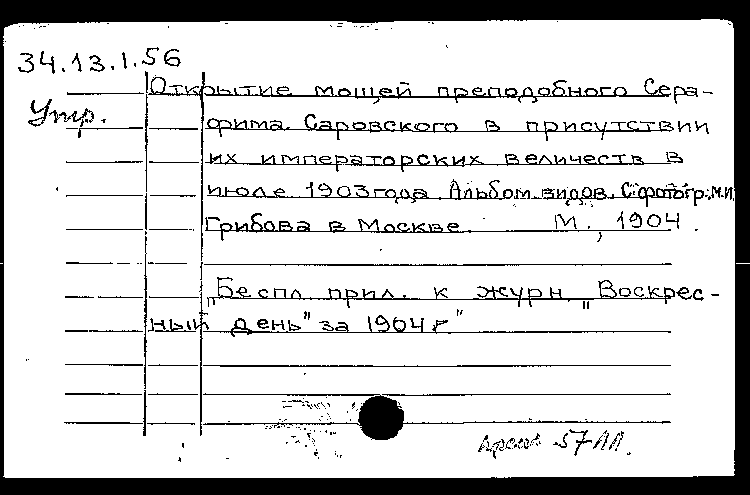 34.13.1.56
Утр.
Открытие мощей преподобного Сера-
фима Саровского в присутствии
их императорских величеств в
июле 1903 года. Альбом видов. С фотогр. М.И.
Грибова в Москве. М., 1904.
„Беспл. прил. к журн. „Воскрес-
ный день" за 1904 г"
57